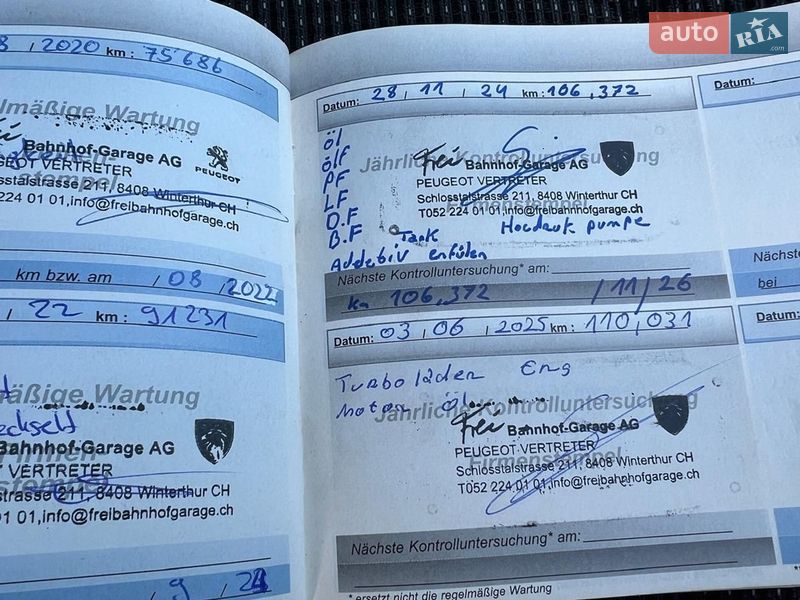 auto RIA .com
8 / 2020 km : 75 686
lmäßige Wartung
Bahnhof-Garage AG
PEUGEOT
EOT VERTRETER
stempel
hlosstalstrasse 211, 8408 Winterthur CH
224 01 01,info@freibahnhofgarage.ch
km bzw. am / 08 / 2022
/ 22 km : 91231
mäßige Wartung
Bahnhof-Garage AG
T VERTRETER
strasse 211, 8408 Winterthur CH
01 01,info@freibahnhofgarage.ch
/ 9 / 24
Datum: 28 / 11 / 24 km : 106,372
öl
ölF
PF
LF
O.F
B.F
Jährliche Kontrolluntersuchung
Frei Bahnhof-Garage AG
PEUGEOT VERTRETER
Schlosstalstrasse 211, 8408 Winterthur CH
Firmenstempel
T052 224 01 01,info@freibahnhofgarage.ch
Tank Hocdruk pumpe
Addetiv enfülen
Nächste Kontrolluntersuchung* am:
km 106,372 / 11 / 26
Datum: 03 / 06 / 2025 km : 110,031
Turbolader Eng
Motor Öl
Jährliche Kontrolluntersuchung
Frei Bahnhof-Garage AG
PEUGEOT VERTRETER
Firmenstempel
Schlosstalstrasse 211, 8408 Winterthur CH
T052 224 01 01,info@freibahnhofgarage.ch
Nächste Kontrolluntersuchung* am:
* ersetzt nicht die regelmäßige Wartung
Datum:
Nächste
bei
Datum: